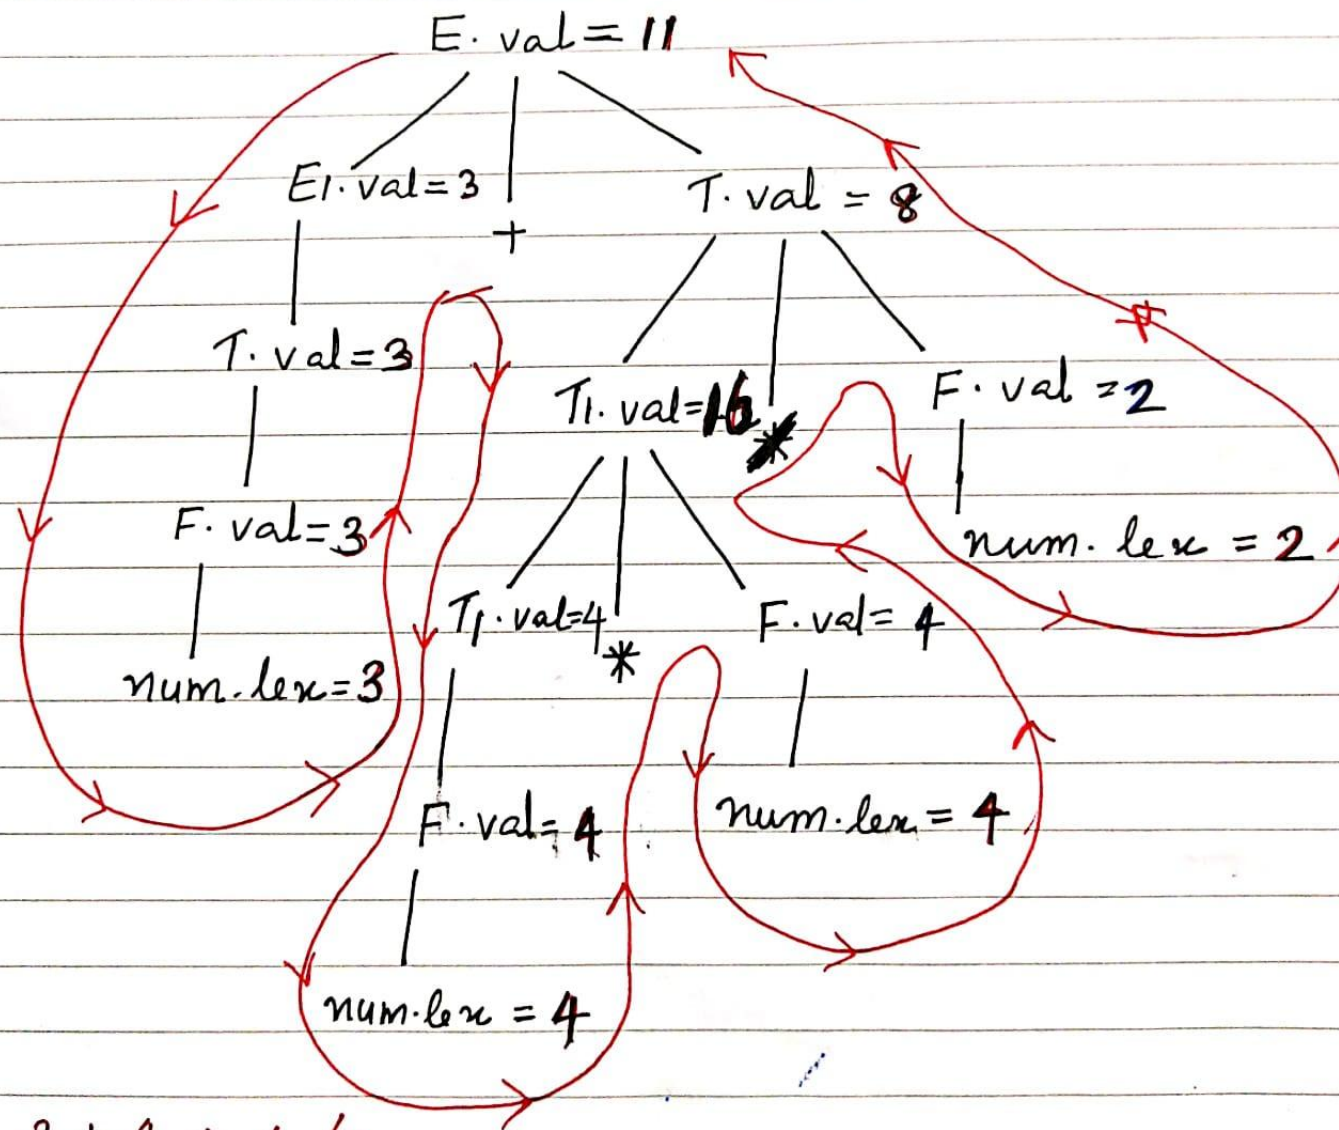 E. val = 11
E1. val = 3
+
T. val = 8
T. val = 3
T1. val = 16
*
F. val = 2
F. val = 3
num. lex = 2
T1. val = 4
*
F. val = 4
num. lex = 3
F. val = 4
num. lex = 4
num. lex = 4